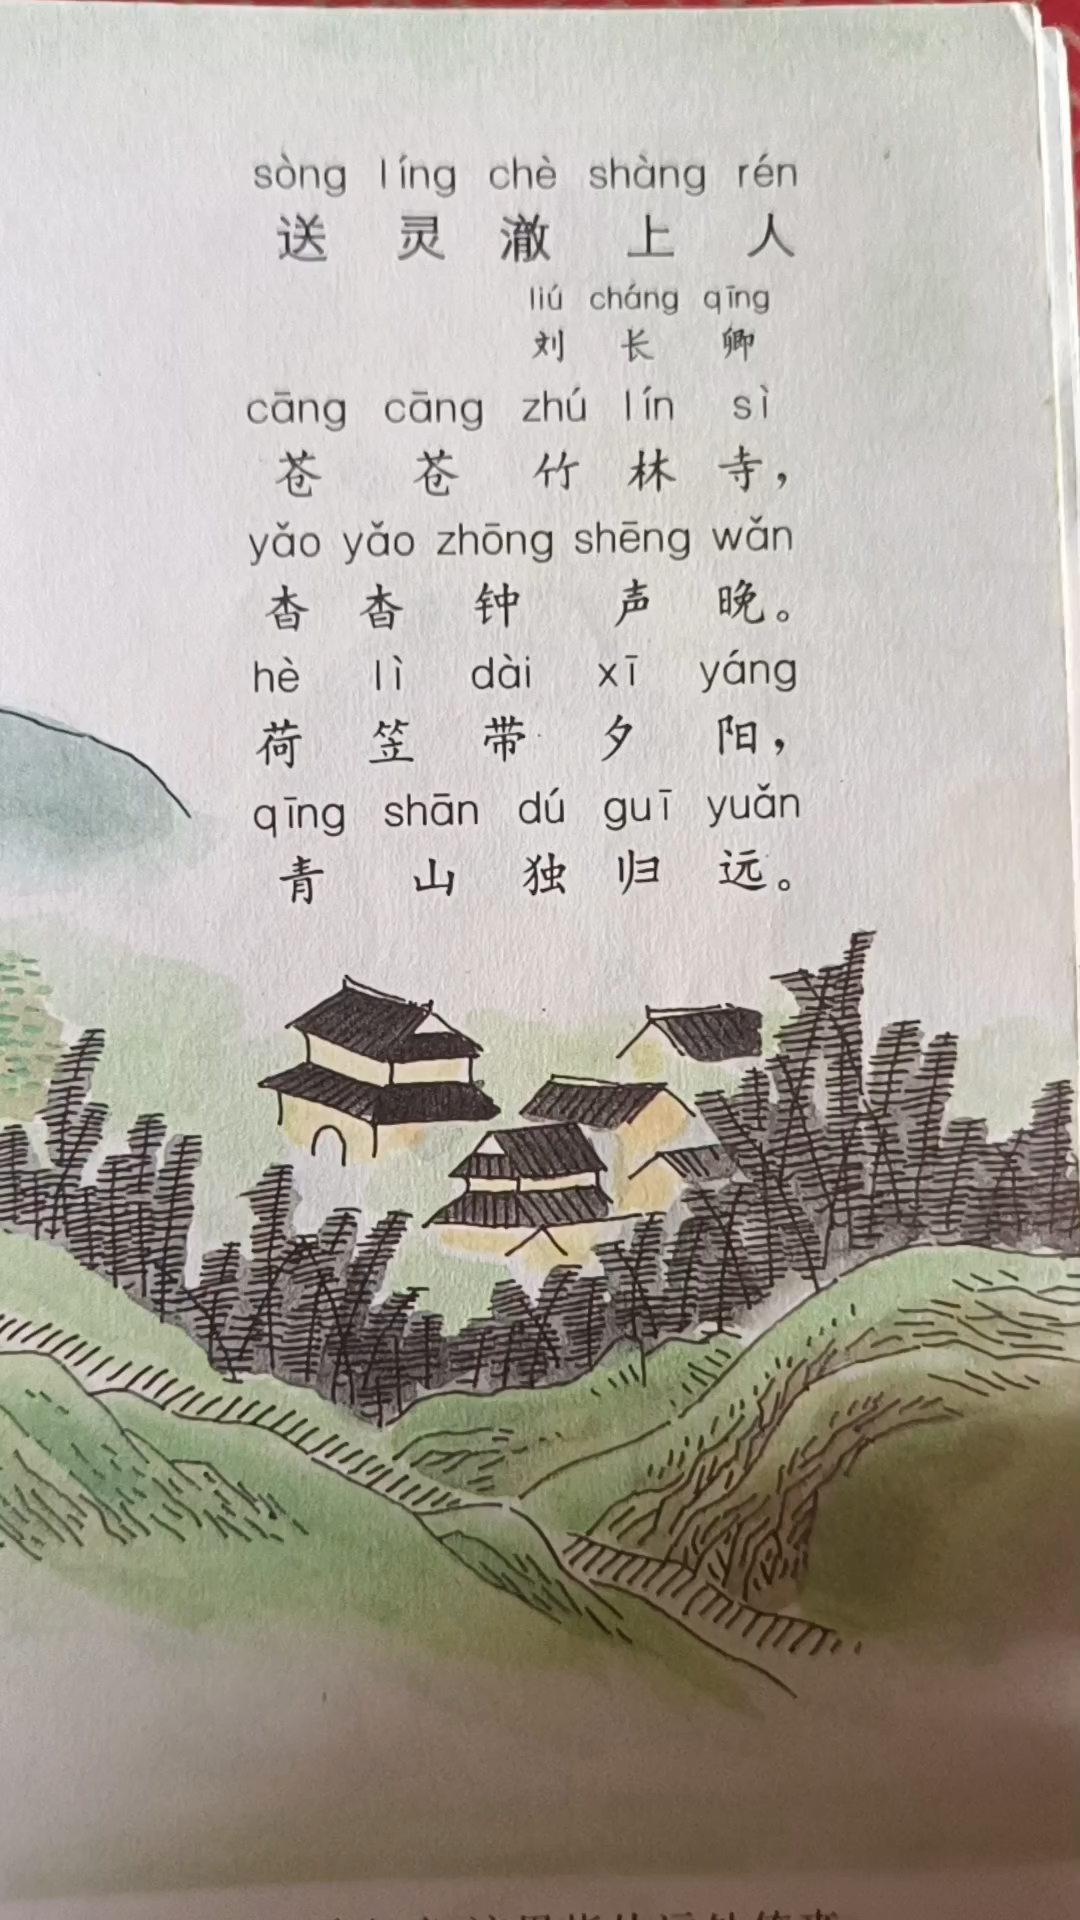 sòng líng chè shàng rén
送灵澈上人
liú cháng qīng
刘长卿
cāng cāng zhú lín sì
苍苍竹林寺，
yǎo yǎo zhōng shēng wǎn
杳杳钟声晚。
hè lì dài xī yáng
荷笠带夕阳，
qīng shān dú guī yuǎn
青山独归远。